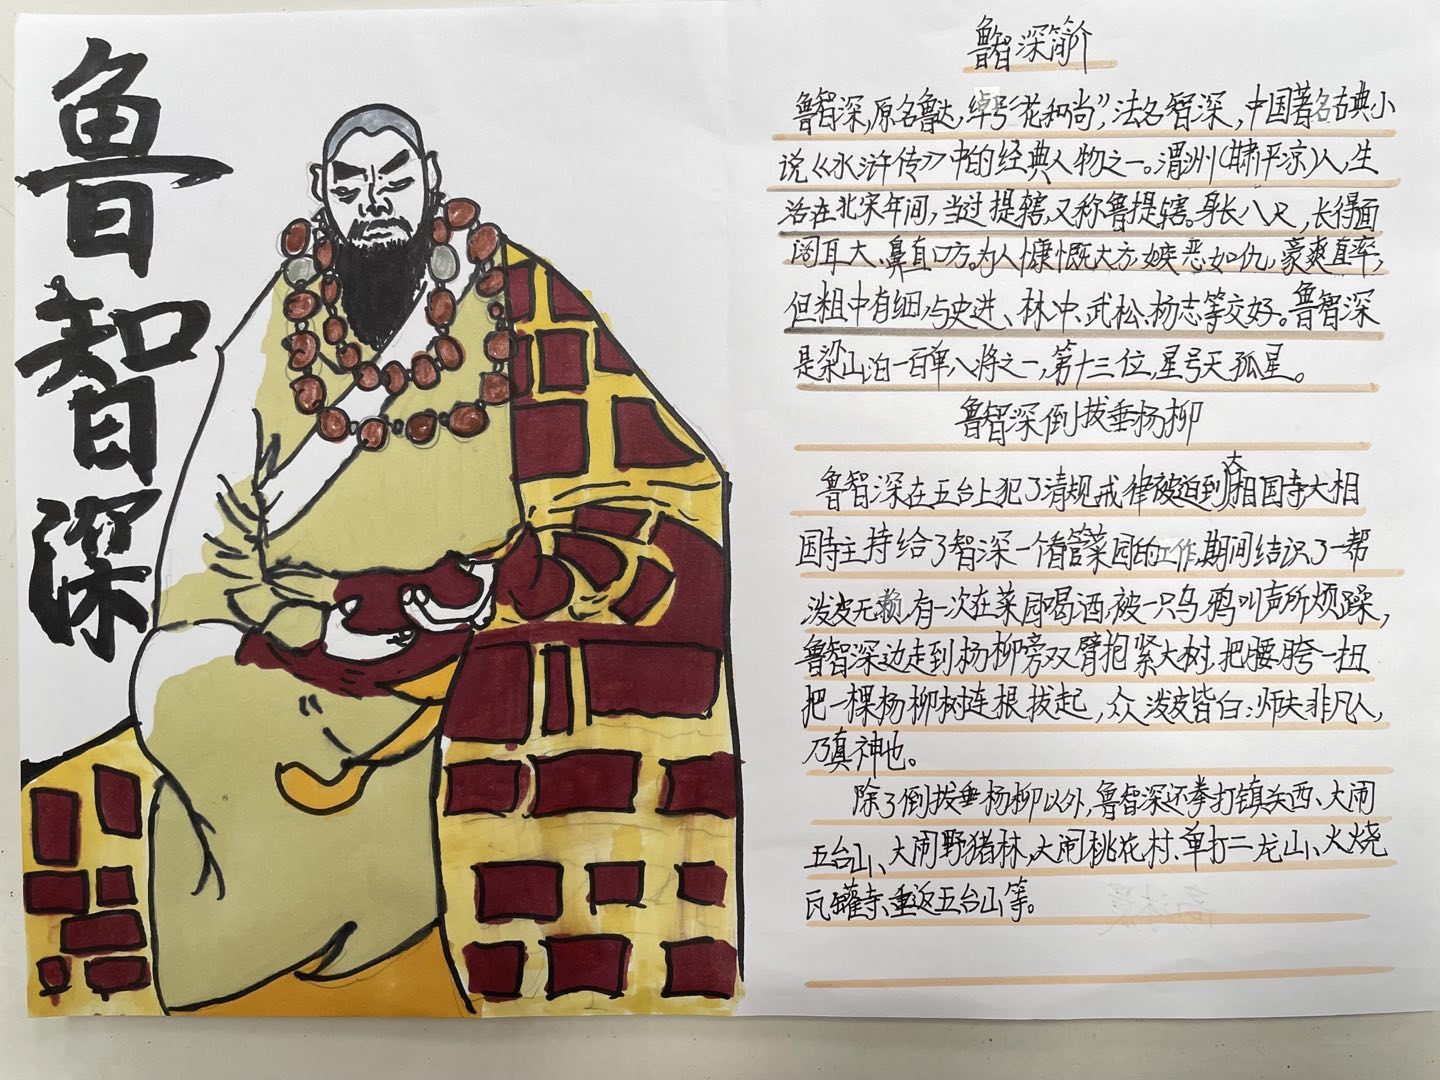 鲁智深
鲁智深简介
鲁智深,原名鲁达,绰号“花和尚”,法名智深,中国著名古典小
说《水浒传》中的经典人物之一。渭洲(肃平凉)人,生
活在北宋年间,当过提辖,又称鲁提辖。身长八尺,长得面
阔耳大、鼻直口方。为人慷慨大方,嫉恶如仇,豪爽直率,
但粗中有细,与史进、林冲、武松、杨志等交好。鲁智深
是梁山泊一百单八将之一,第十三位,星号天孤星。
鲁智深倒拔垂杨柳
鲁智深在五台上犯了清规戒律被迫到大相国寺大相
国寺主持给了智深一个看管菜园的工作,期间结识了一帮
泼皮无赖,有一次在菜园喝酒,被一只乌鸦叫声所烦躁,
鲁智深边走到杨柳旁双臂抱紧大树,把腰胯一扭
把一棵杨柳树连根拔起,众泼皮皆白:师夫非凡人,
乃真神也。
除了倒拔垂杨柳以外,鲁智深还拳打镇关西、大闹
五台山、大闹野猪林,大闹桃花村、单打二龙山、火烧
瓦罐寺、重返五台山等。